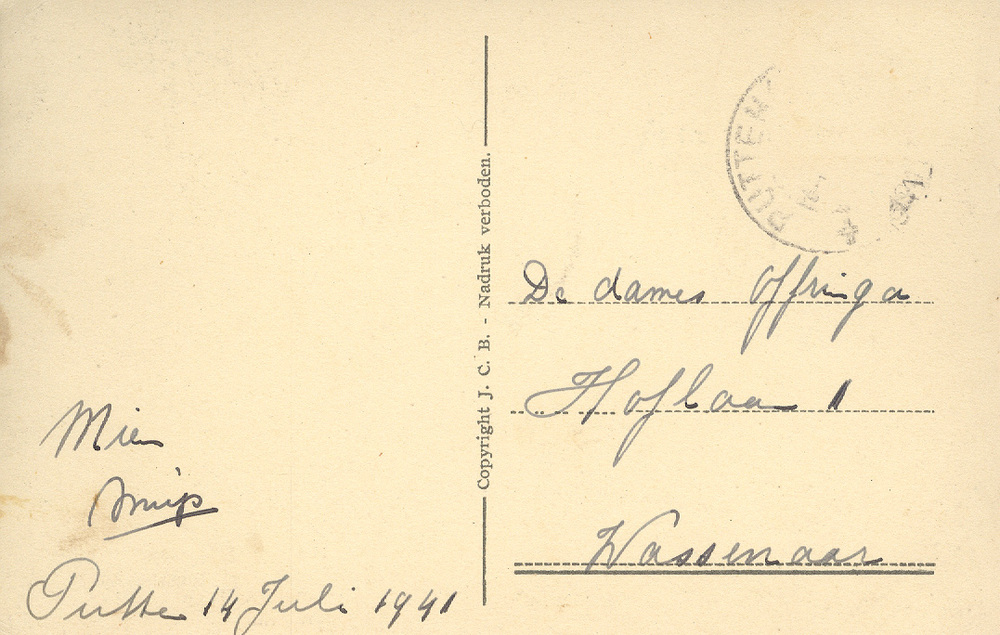 Mien
Putten 14 Juli 1941
Copyright J. C. B. - Nadruk verboden.
PUTTEN
De dames Offringa
Hoflaan 1
Wassenaar